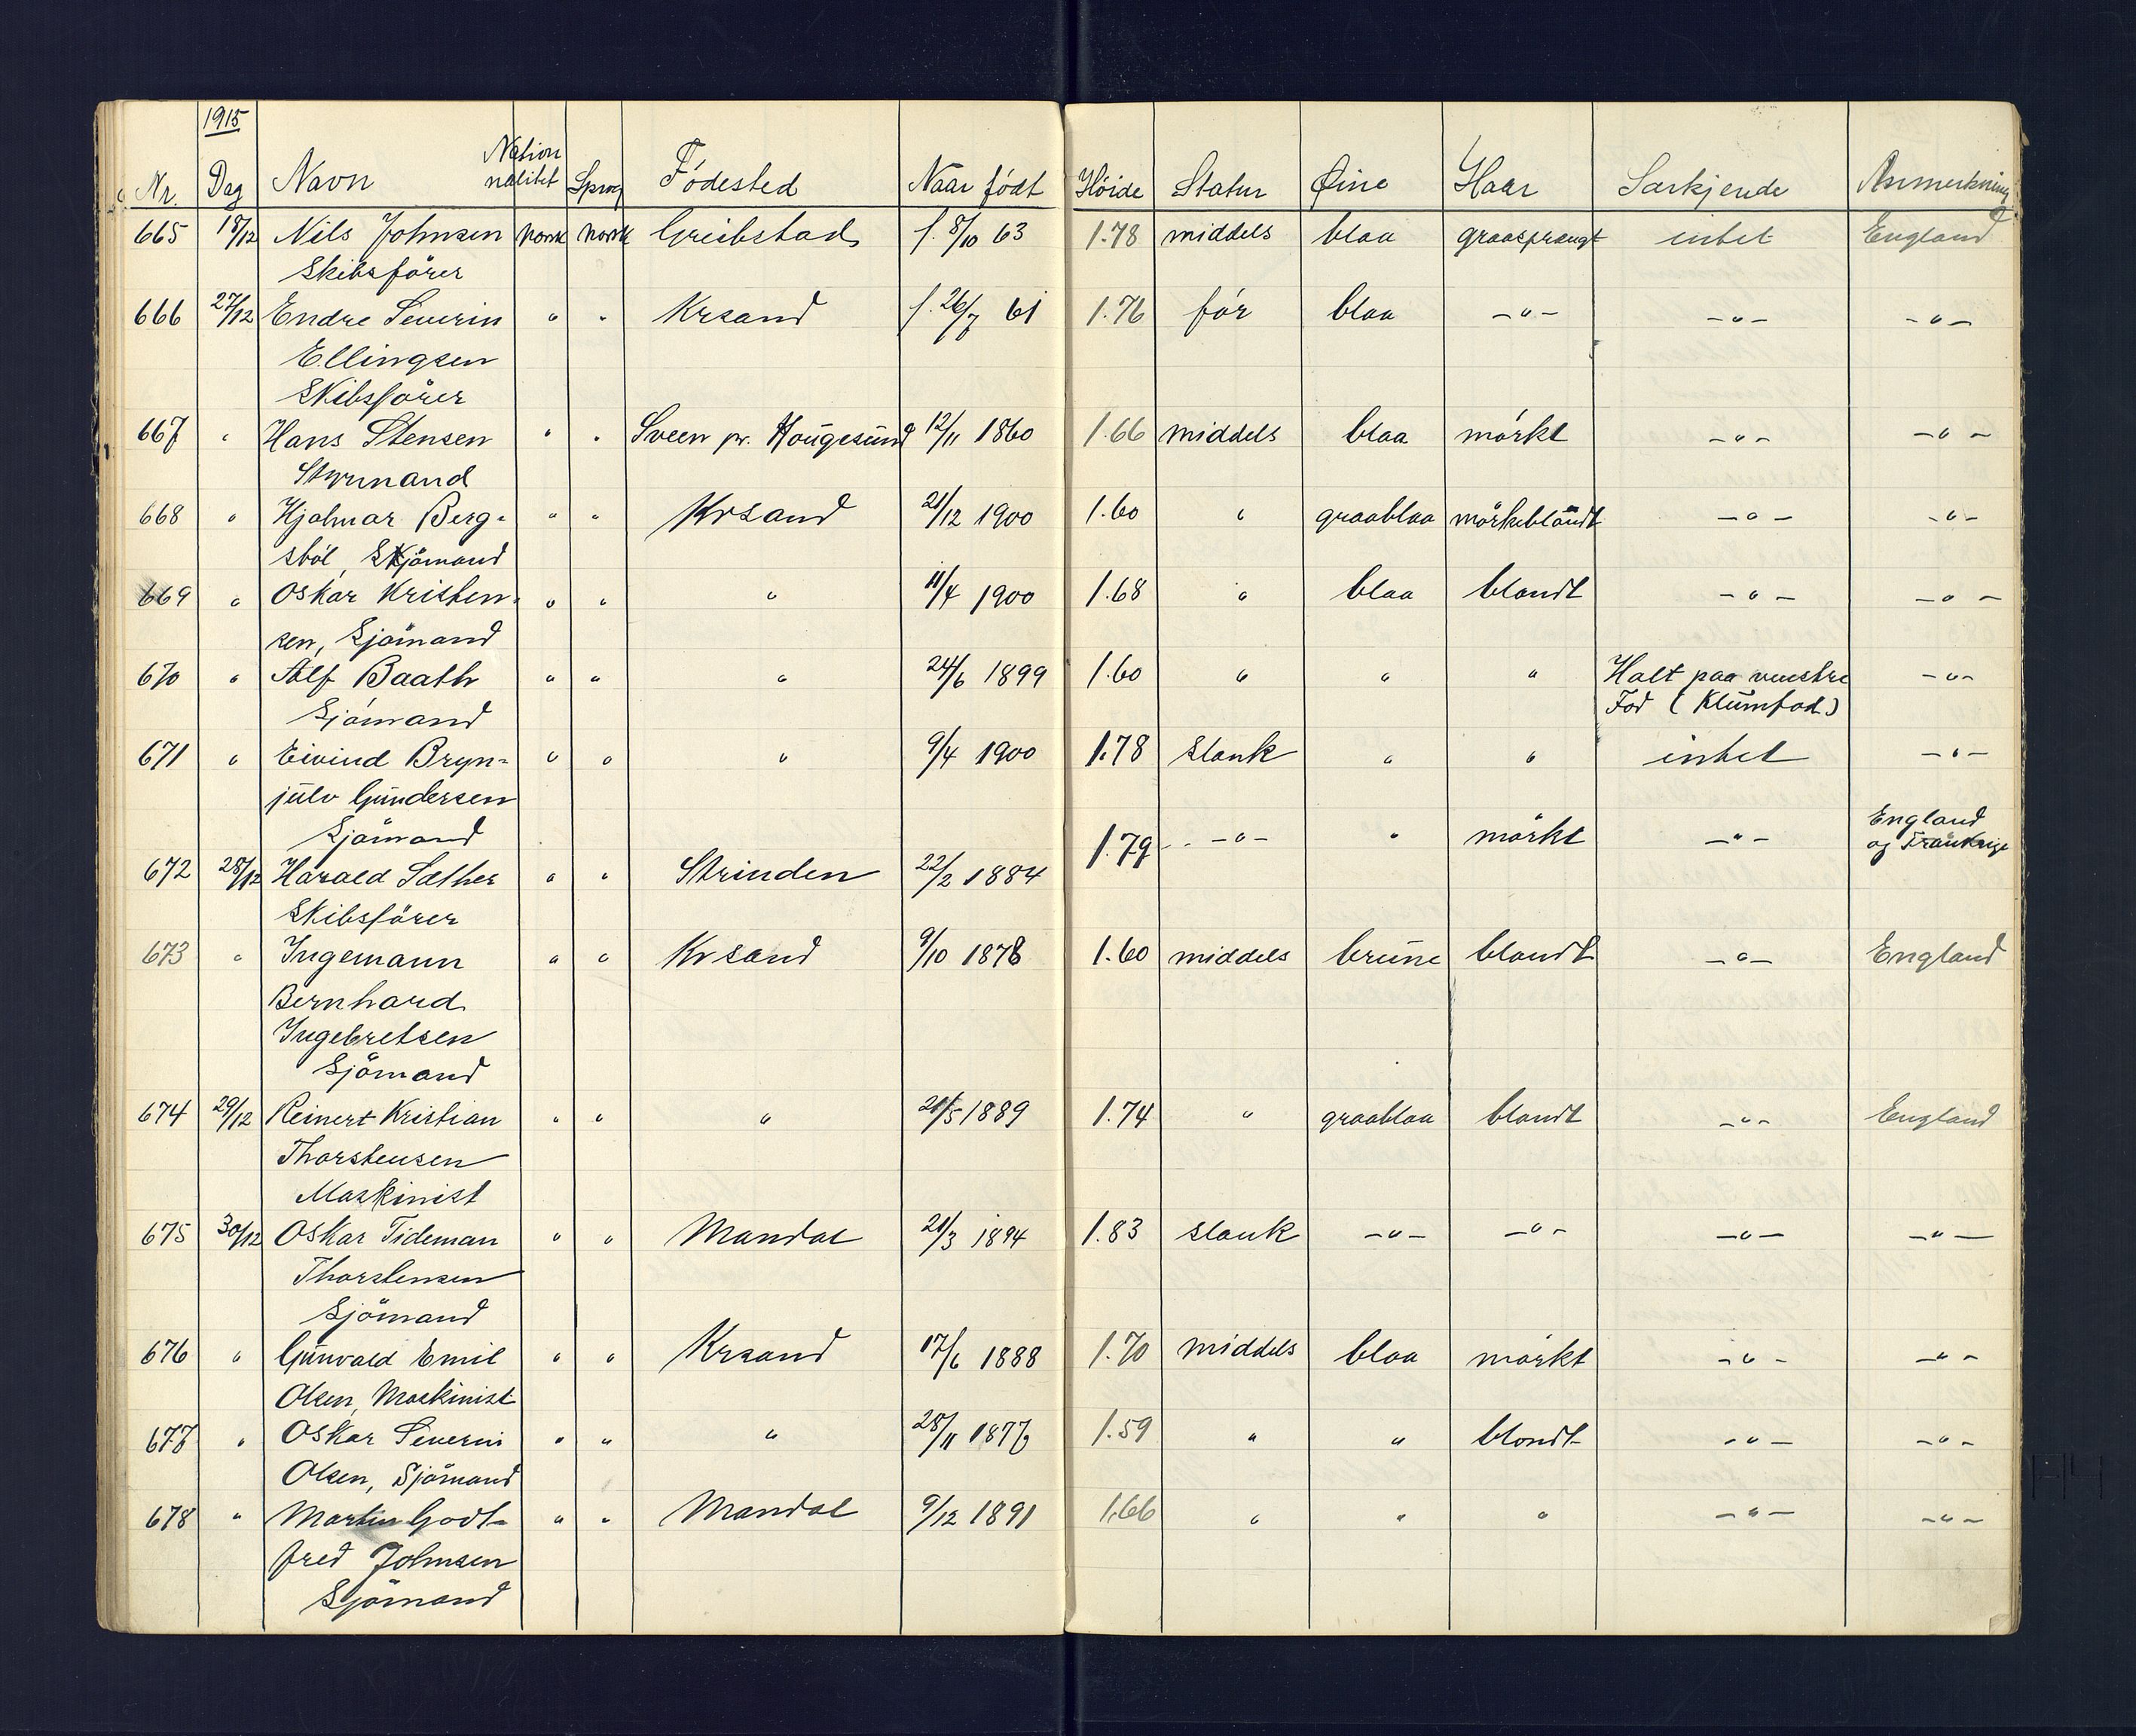 1915
Nr. Dag Navn Nation nalitet Sprog Födested Naar födt Höide Statur Øine Haar Særkjende Anmerkning
665 18/12 Nils Johnsen norsk norsk Greibstad f. 8/10 63 1.78 middels blaa graasprængt intet England
Skibsförer
666 27/12 Endre Severin " " Krsand f. 26/7 61 1.76 för blaa -"- -"- -"-
Ellingsen
Skibsförer
667 " Hans Stensen " " Sveen pr. Hougesund 12/11 1860 1.66 middels blaa mörkt -"- -"-
Styrmand
668 " Hjalmar Berg- " " Krsand 21/12 1900 1.60 " graablaa mörkeblandt -"- -"-
sböl, Sjömand
669 " Oskar Kristen- " " " 11/4 1900 1.68 " blaa blondt -"- -"-
sen, Sjömand
670 " Alf Baath " " " 24/6 1899 1.60 " " " Halt paa venstre -"-
Sjömand Fod (Klumfod)
671 " Eivind Bryn- " " " 9/4 1900 1.78 slank " " intet -"-
julv Gundersen
Sjömand
672 28/12 Harald Sæther " " Strinden 22/2 1884 1.79 -"- " mörkt -"- England og Frankrige
Skibsförer
673 " Ingemann " " Krsand 9/10 1878 1.60 middels brune blondt -"- England
Bernhard
Ingebretsen
Sjömand
674 29/12 Reinert Kristian " " " 21/5 1889 1.74 " graablaa blondt -"- England
Thorstensen
Maskinist
675 30/12 Oskar Tideman " " Mandal 21/3 1894 1.83 slank -"- -"- -"- -"-
Thorstensen
Sjömand
676 " Gunvald Emil " " Krsand 17/6 1888 1.70 middels blaa mörkt -"- -"-
Olsen, Maskinist
677 " Oskar Severin " " " 28/11 1877 1.59 " " blondt -"- -"-
Olsen, Sjömand
678 " Martin Godt- " " Mandal 9/12 1891 1.66 " " " -"- -"-
fred Johnsen
Sjömand